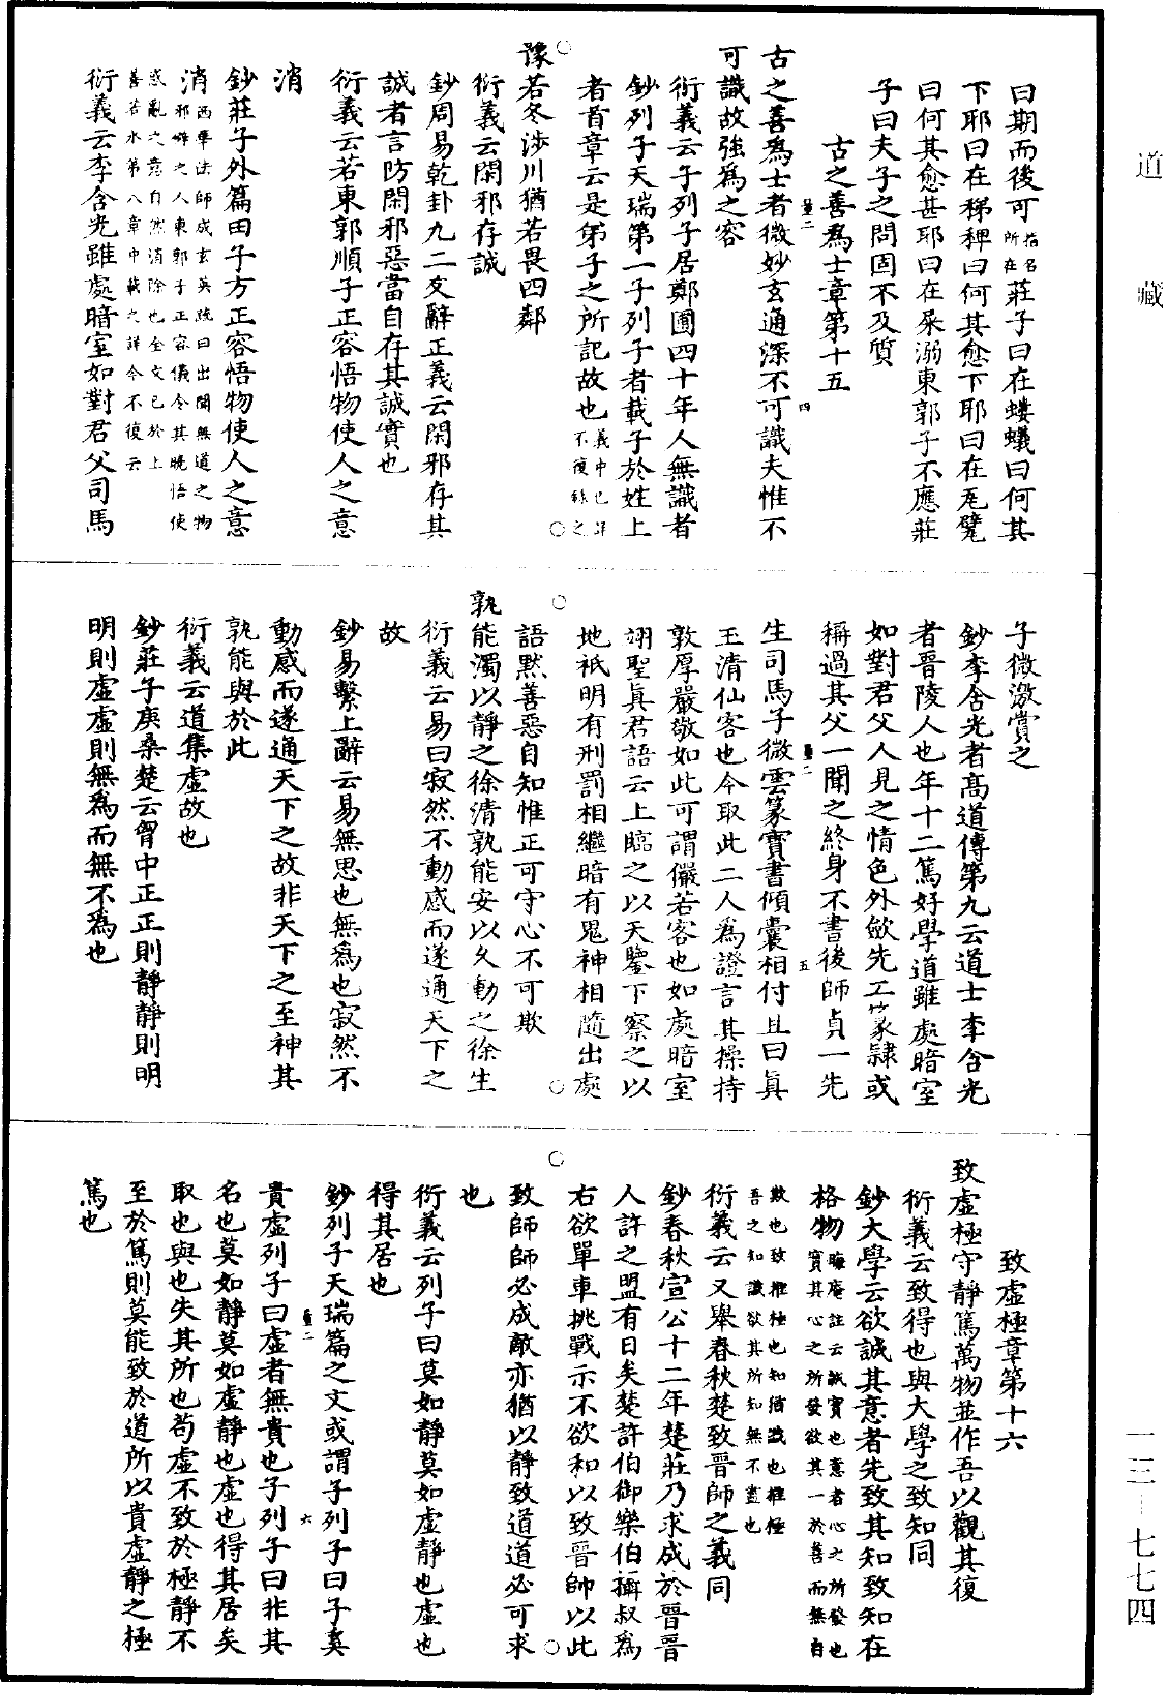 道藏
曰期而後可指名所在莊子曰在螻蟻曰何其
下耶曰在稊稗曰何其愈下耶曰在瓦甓
曰何其愈甚耶曰在屎溺東郭子不應莊
子曰夫子之問固不及質
古之善為士章第十五
古之善為士者微妙玄通深不可識夫惟不
可識故強為之容
衍義云子列子居鄭圃四十年人無識者
鈔列子天瑞第一子列子者載子於姓上
者首章云是弟子之所記故也義中已詳不復錄之
豫若冬涉川猶若畏四鄰
衍義云閑邪存誠
鈔周易乾卦九二爻辭正義云閑邪存其
誠者言防閑邪惡當自存其誠實也
衍義云若東郭順子正容悟物使人之意
消
鈔莊子外篇田子方正容悟物使人之意
消西華法師成玄英疏曰出閑無道之物邪僻之人東郭子正容儀令其曉悟使
惑亂之意自然消除也全文已於上善若水第八章中載之詳今不復云
衍義云李含光雖處暗室如對君父司馬
子微激賞之
鈔李含光者高道傳第九云道士李含光
者晉陵人也年十二篤好學道雖處暗室
如對君父人見之情色外斂先工篆隸或
稱過其父一聞之終身不書後師貞一先
生司馬子微雲篆寶書傾囊相付且曰真
玉清仙客也今取此二人為證言其操持
敦厚嚴敬如此可謂儼若客也如處暗室
翊聖真君語云上臨之以天鑒下察之以
地祇明有刑罰相繼暗有鬼神相隨出處
語默善惡自知惟正可守心不可欺
孰能濁以靜之徐清孰能安以久動之徐生
衍義云易曰寂然不動感而遂通天下之
故
鈔易繫上辭云易無思也無為也寂然不
動感而遂通天下之故非天下之至神其
孰能與於此
衍義云道集虛故也
鈔莊子庚桑楚云胷中正正則靜靜則明
明則虛虛則無為而無不為也
致虛極章第十六
致虛極守靜篤萬物並作吾以觀其復
衍義云致得也與大學之致知同
鈔大學云欲誠其意者先致其知致知在
格物晦庵註云誠實也意者心之所發也實其心之所發欲其一於善而無自
欺也致推極也知猶識也推極吾之知識欲其所知無不盡也
衍義云又舉春秋楚致晉師之義同
鈔春秋宣公十二年楚莊乃求成於晉晉
人許之盟有日矣楚許伯御樂伯攝叔為
右欲單車挑戰示不欲和以致晉師以此
致師師必成敵亦猶以靜致道道必可求
也
衍義云列子曰莫如靜莫如虛靜也虛也
得其居也
鈔列子天瑞篇之文或謂子列子曰子奚
貴虛列子曰虛者無貴也子列子曰非其
名也莫如靜莫如虛靜也虛也得其居矣
取也與也失其所也苟虛不致於極靜不
至於篤則莫能致於道所以貴虛靜之極
篤也
一三－七七四